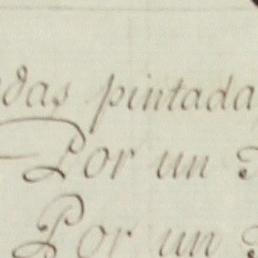 pintada
Por un
Por un